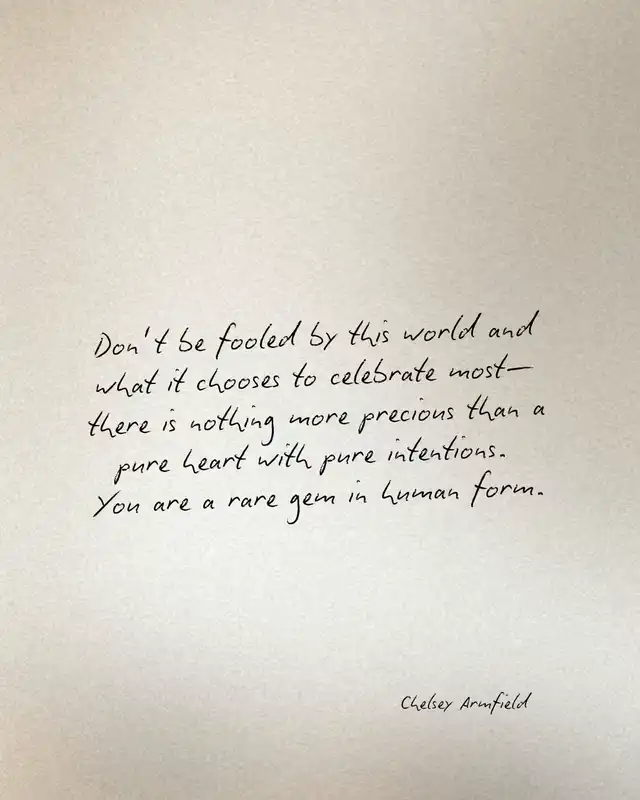 Don't be fooled by this world and
what it chooses to celebrate most—
there is nothing more precious than a
pure heart with pure intentions.
You are a rare gem in human form.
Chelsey Armfield